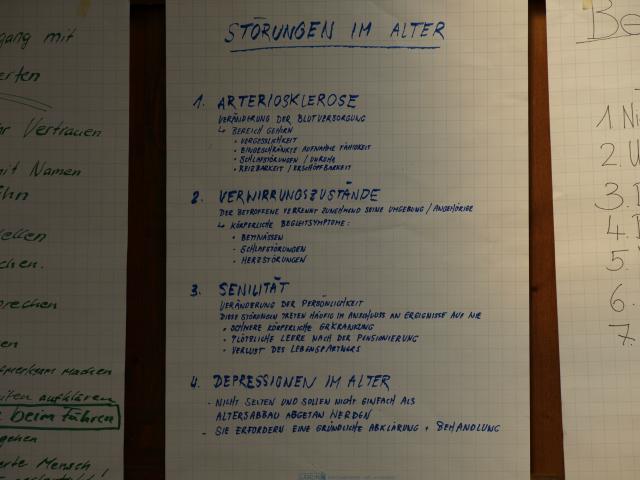 gang mit
erten
Vertrauen
mit Namen
chen.
rechen
aufmerksam machen
aufklären
beim Führen
gehen
Mensch
STÖRUNGEN IM ALTER
1. ARTERIOSKLEROSE
VERÄNDERUNG DER BLUTVERSORGUNG
↳ BEREICH GEHIRN
• VERGESSLICHKEIT
• EINGESCHRÄNKTE AUFNAHME FÄHIGKEIT
• SCHLAFSTÖRUNGEN / UNRUHE
• REIZBARKEIT / ERSCHÖPFBARKEIT
2. VERWIRRUNGSZUSTÄNDE
DER BETROFFENE VERKENNT ZUNEHMEND SEINE UMGEBUNG / ANGEHÖRIGE
↳ KÖRPERLICHE BEGLEITSYMPTOME:
• BETTNÄSSEN
- SCHLAFSTÖRUNGEN
• HERZSTÖRUNGEN
3. SENILITÄT
VERÄNDERUNG DER PERSÖNLICHKEIT
DIESE STÖRUNGEN TRETEN HÄUFIG IM ANSCHLUSS AN EREIGNISSE AUF WIE
• SCHWERE KÖRPERLICHE ERKRANKUNG
• PLÖTZLICHE LEERE NACH DER PENSIONIERUNG
• VERLUST DES LEBENSPARTNERS
4. DEPRESSIONEN IM ALTER
- NICHT SELTEN UND SOLLEN NICHT EINFACH ALS
ALTERSABBAU ABGETAN WERDEN
- SIE ERFORDERN EINE GRÜNDLICHE ABKLÄRUNG + BEHANDLUNG
Be
1. Ni
2. U
3.
4.
5.
6.
7.